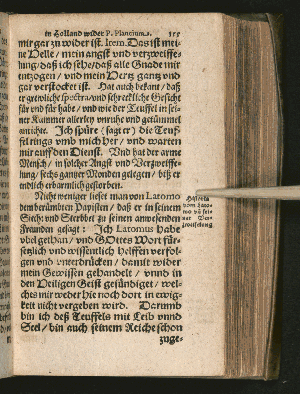 in Holland wider P. Plancium. 155
mir gar zu wider ist. Item. Das ist mei-
ne Helle / mein angst und verzweiffe-
lung / daß ich sehe / daß alle Gnade mir
entzogen / und mein Hertz gantz und
gar verstocket ist. Hat auch bekant / daß
er grewliche spectra und schreckliche Gesicht
für und für habe / und wie der Teuffel in sei-
ner Kammer allerley unruhe und getümmel
anrichte. Ich spüre (sagt er) die Teuf-
fel rings umb mich her / und warten
mir auff den Dienst. Und hat der arme
Mensch / in solcher Angst und Verzweiffe-
lung / sechs gantzer Monden gelegen / biß er
endlich erbärmlich gestorben.
Nicht weniger lieset man von Latomo
dem berümbten Papisten / daß er in seinem
Siech- und Sterbbet zu seinen anwesenden
Freunden gesagt: Ich Latomus habe
vbel gethan / und GOttes Wort für-
setzlich und wissentlich helffen verfol-
gen und vnterdrücken / damit wider
mein Gewissen gehandelt / vnnd in
den Heiligen Geist gesündiget / wel-
ches mir weder hie noch dort in ewig-
keit nicht vergeben wird. Darumb
bin ich deß Teuffels mit Leib vnnd
Seel / bin auch seinem Reiche schon
zuge-
Historia
vom Lato-
mo vñ sei-
ner Ver-
zweifelung